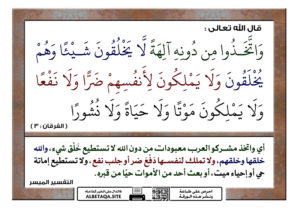 قال الله تعالى :
وَاتَّخَذُوا مِن دُونِهِ آلِهَةً لَّا يَخْلُقُونَ شَيْئًا وَهُمْ
يُخْلَقُونَ وَلَا يَمْلِكُونَ لِأَنفُسِهِمْ ضَرًّا وَلَا نَفْعًا
وَلَا يَمْلِكُونَ مَوْتًا وَلَا حَيَاةً وَلَا نُشُورًا
(الفرقان : ٣)
أي واتخذ مشركو العرب معبودات من دون الله لا تستطيع خَلْق شيء، والله
خلقها وخلقهم، ولا تملك لنفسها دَفْعَ ضر أو جلب نفع، ولا تستطيع إماتة
حي أو إحياء ميت، أو بعث أحد من الأموات حيًا من قبره.
التفسير الميسر
ALBETAQA.SITE